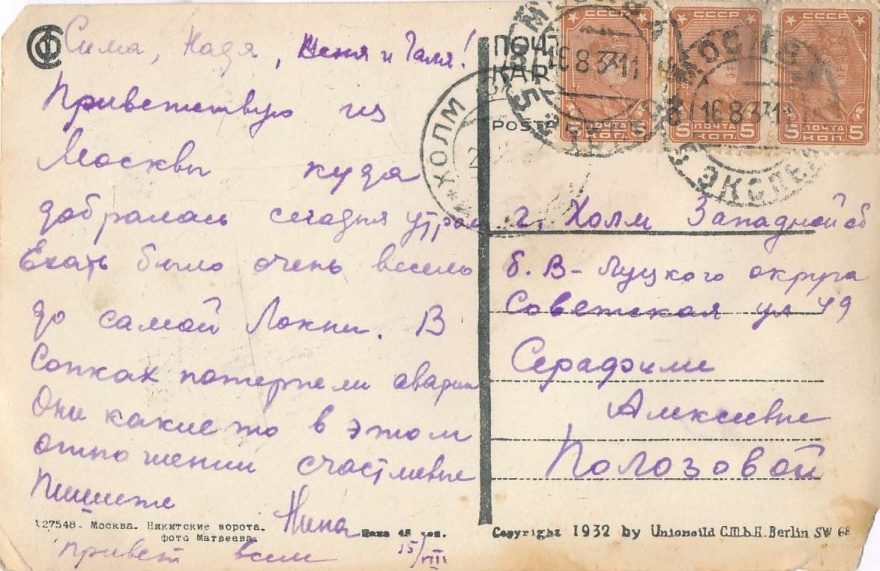 Сима, Надя, Женя и Галя!
Приветствую из
Москвы куда
добралась сегодня утром
Ехать было очень весело
до самой Локни. В
Сопках потерпели аварию
Они какие то в этом
отношении счастливые
Пишите
Нина
127548. Москва. Никитские ворота.
фото Матвеева.
Цена 45 коп.
Привет всем
15/VIII
ПОЧТ
КАР
POSTE
ХОЛМ
МОСКВА
16.8.37.11
МОСКВА
16.8.37.11
ЭКСПЕ
СССР
5 ПОЧТА КОП. 5
СССР
5 ПОЧТА КОП. 5
СССР
5 ПОЧТА КОП. 5
г. Холм Западной об
б. В-Луцкого округа
Советская ул 49
Серафиме
Алексеевне
Полозовой
Copyright 1932 by Unionbild G.m.b.H. Berlin SW 68